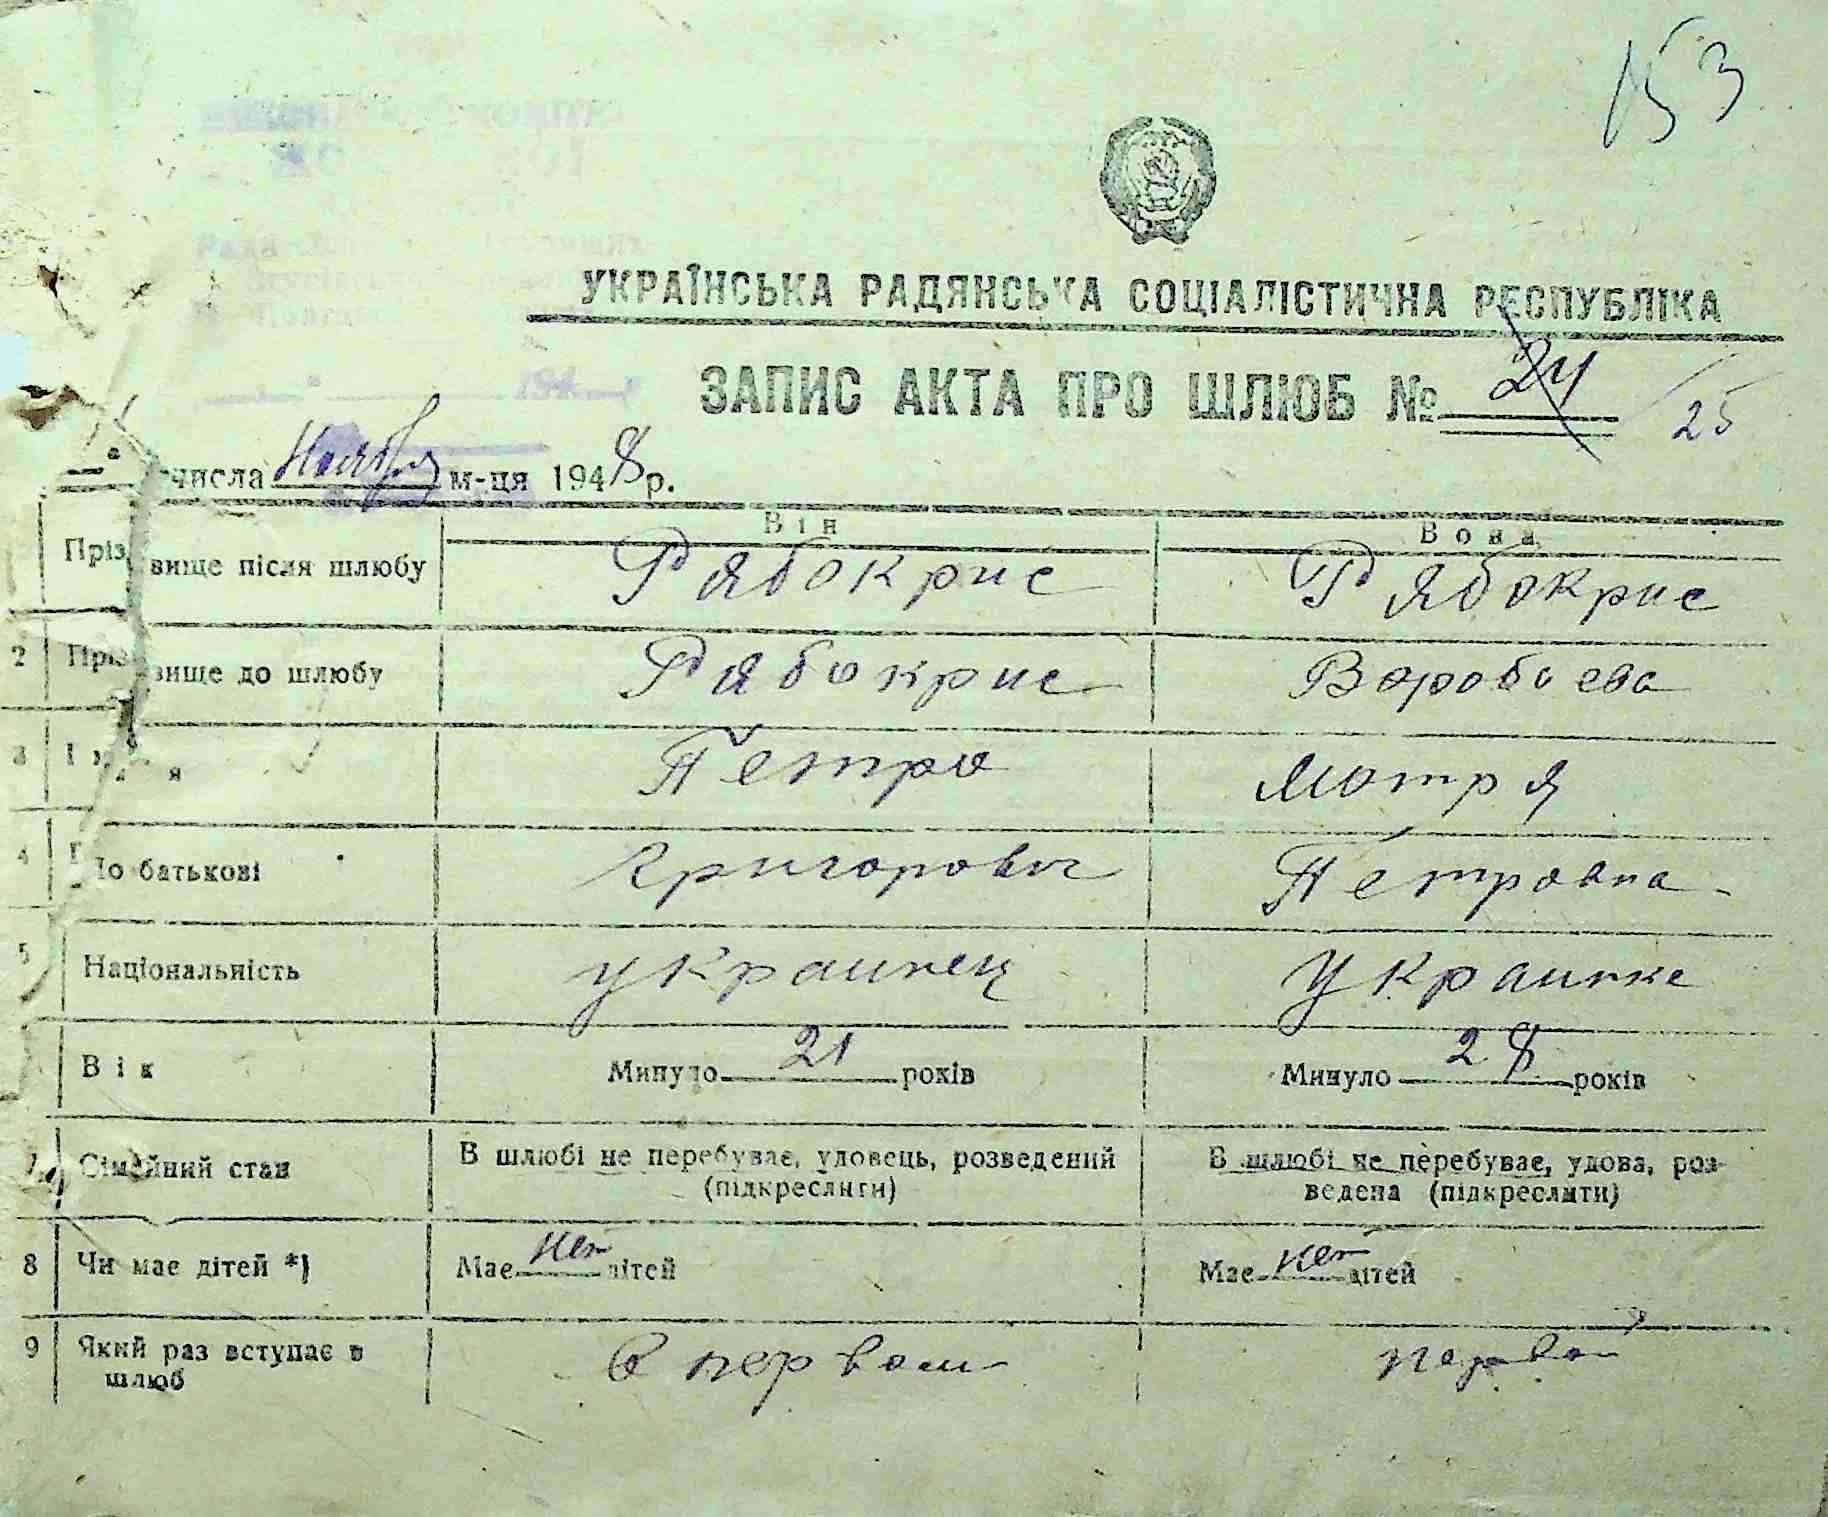 153
УКРАЇНСЬКА РАДЯНСЬКА СОЦІАЛІСТИЧНА РЕСПУБЛІКА
ЗАПИС АКТА ПРО ШЛЮБ № 24 25
числа Ноября м-ця 1948 р.
Він Вона
Прізвище після шлюбу Рябокрис Рябокрис
2 Прізвище до шлюбу Рябокрис Воробьева
3 Петро Мотря
4 По батькові Григорович Петровна
5 Національність украинец Украинка
Вік Минуло 21 років Минуло 28 років
7 Сімейний стан В шлюбі не перебуває, удовець, розведений В шлюбі не перебуває, удова, роз-
(підкреслити) ведена (підкреслити)
8 Чи має дітей *) Має нет дітей Має нет дітей
9 Який раз вступає в В первом первой
шлюб